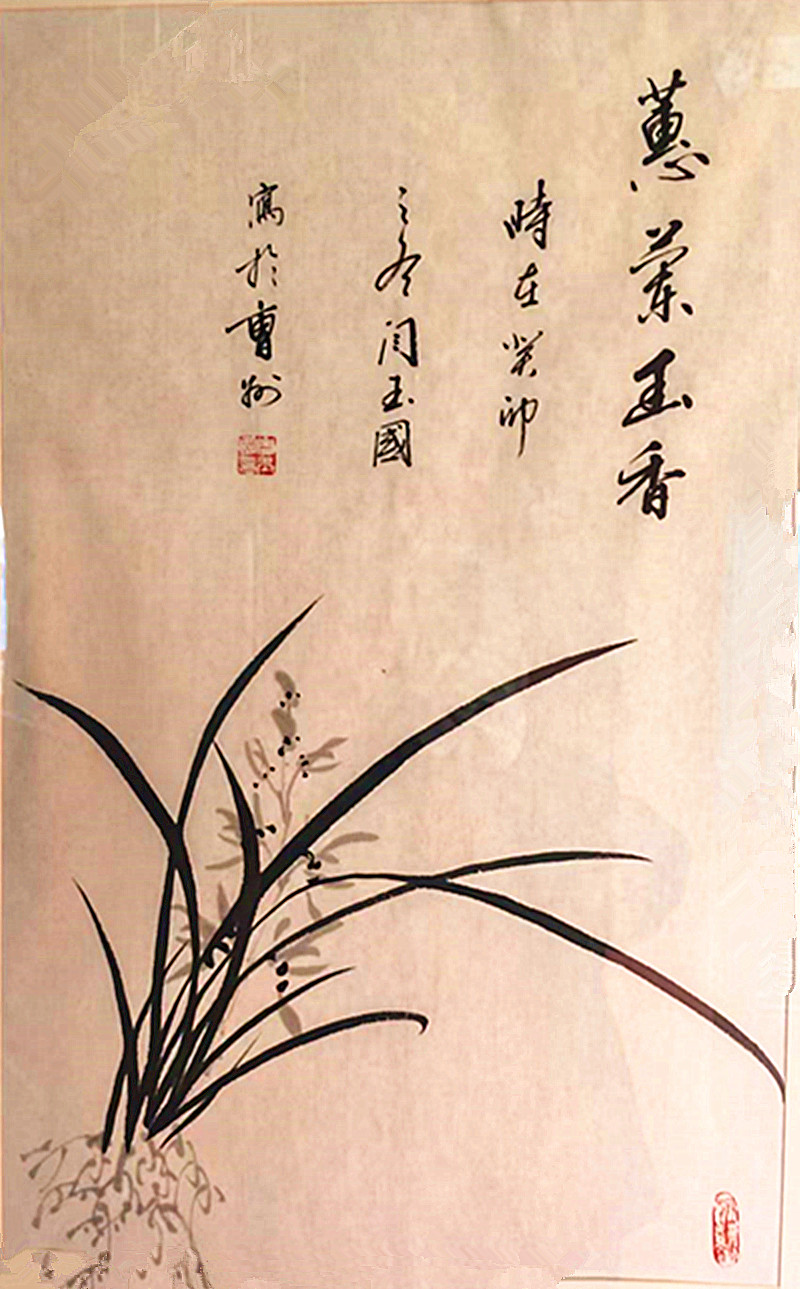 蕙蘭幽香
時在癸卯
之冬閆玉國
寫於曹州